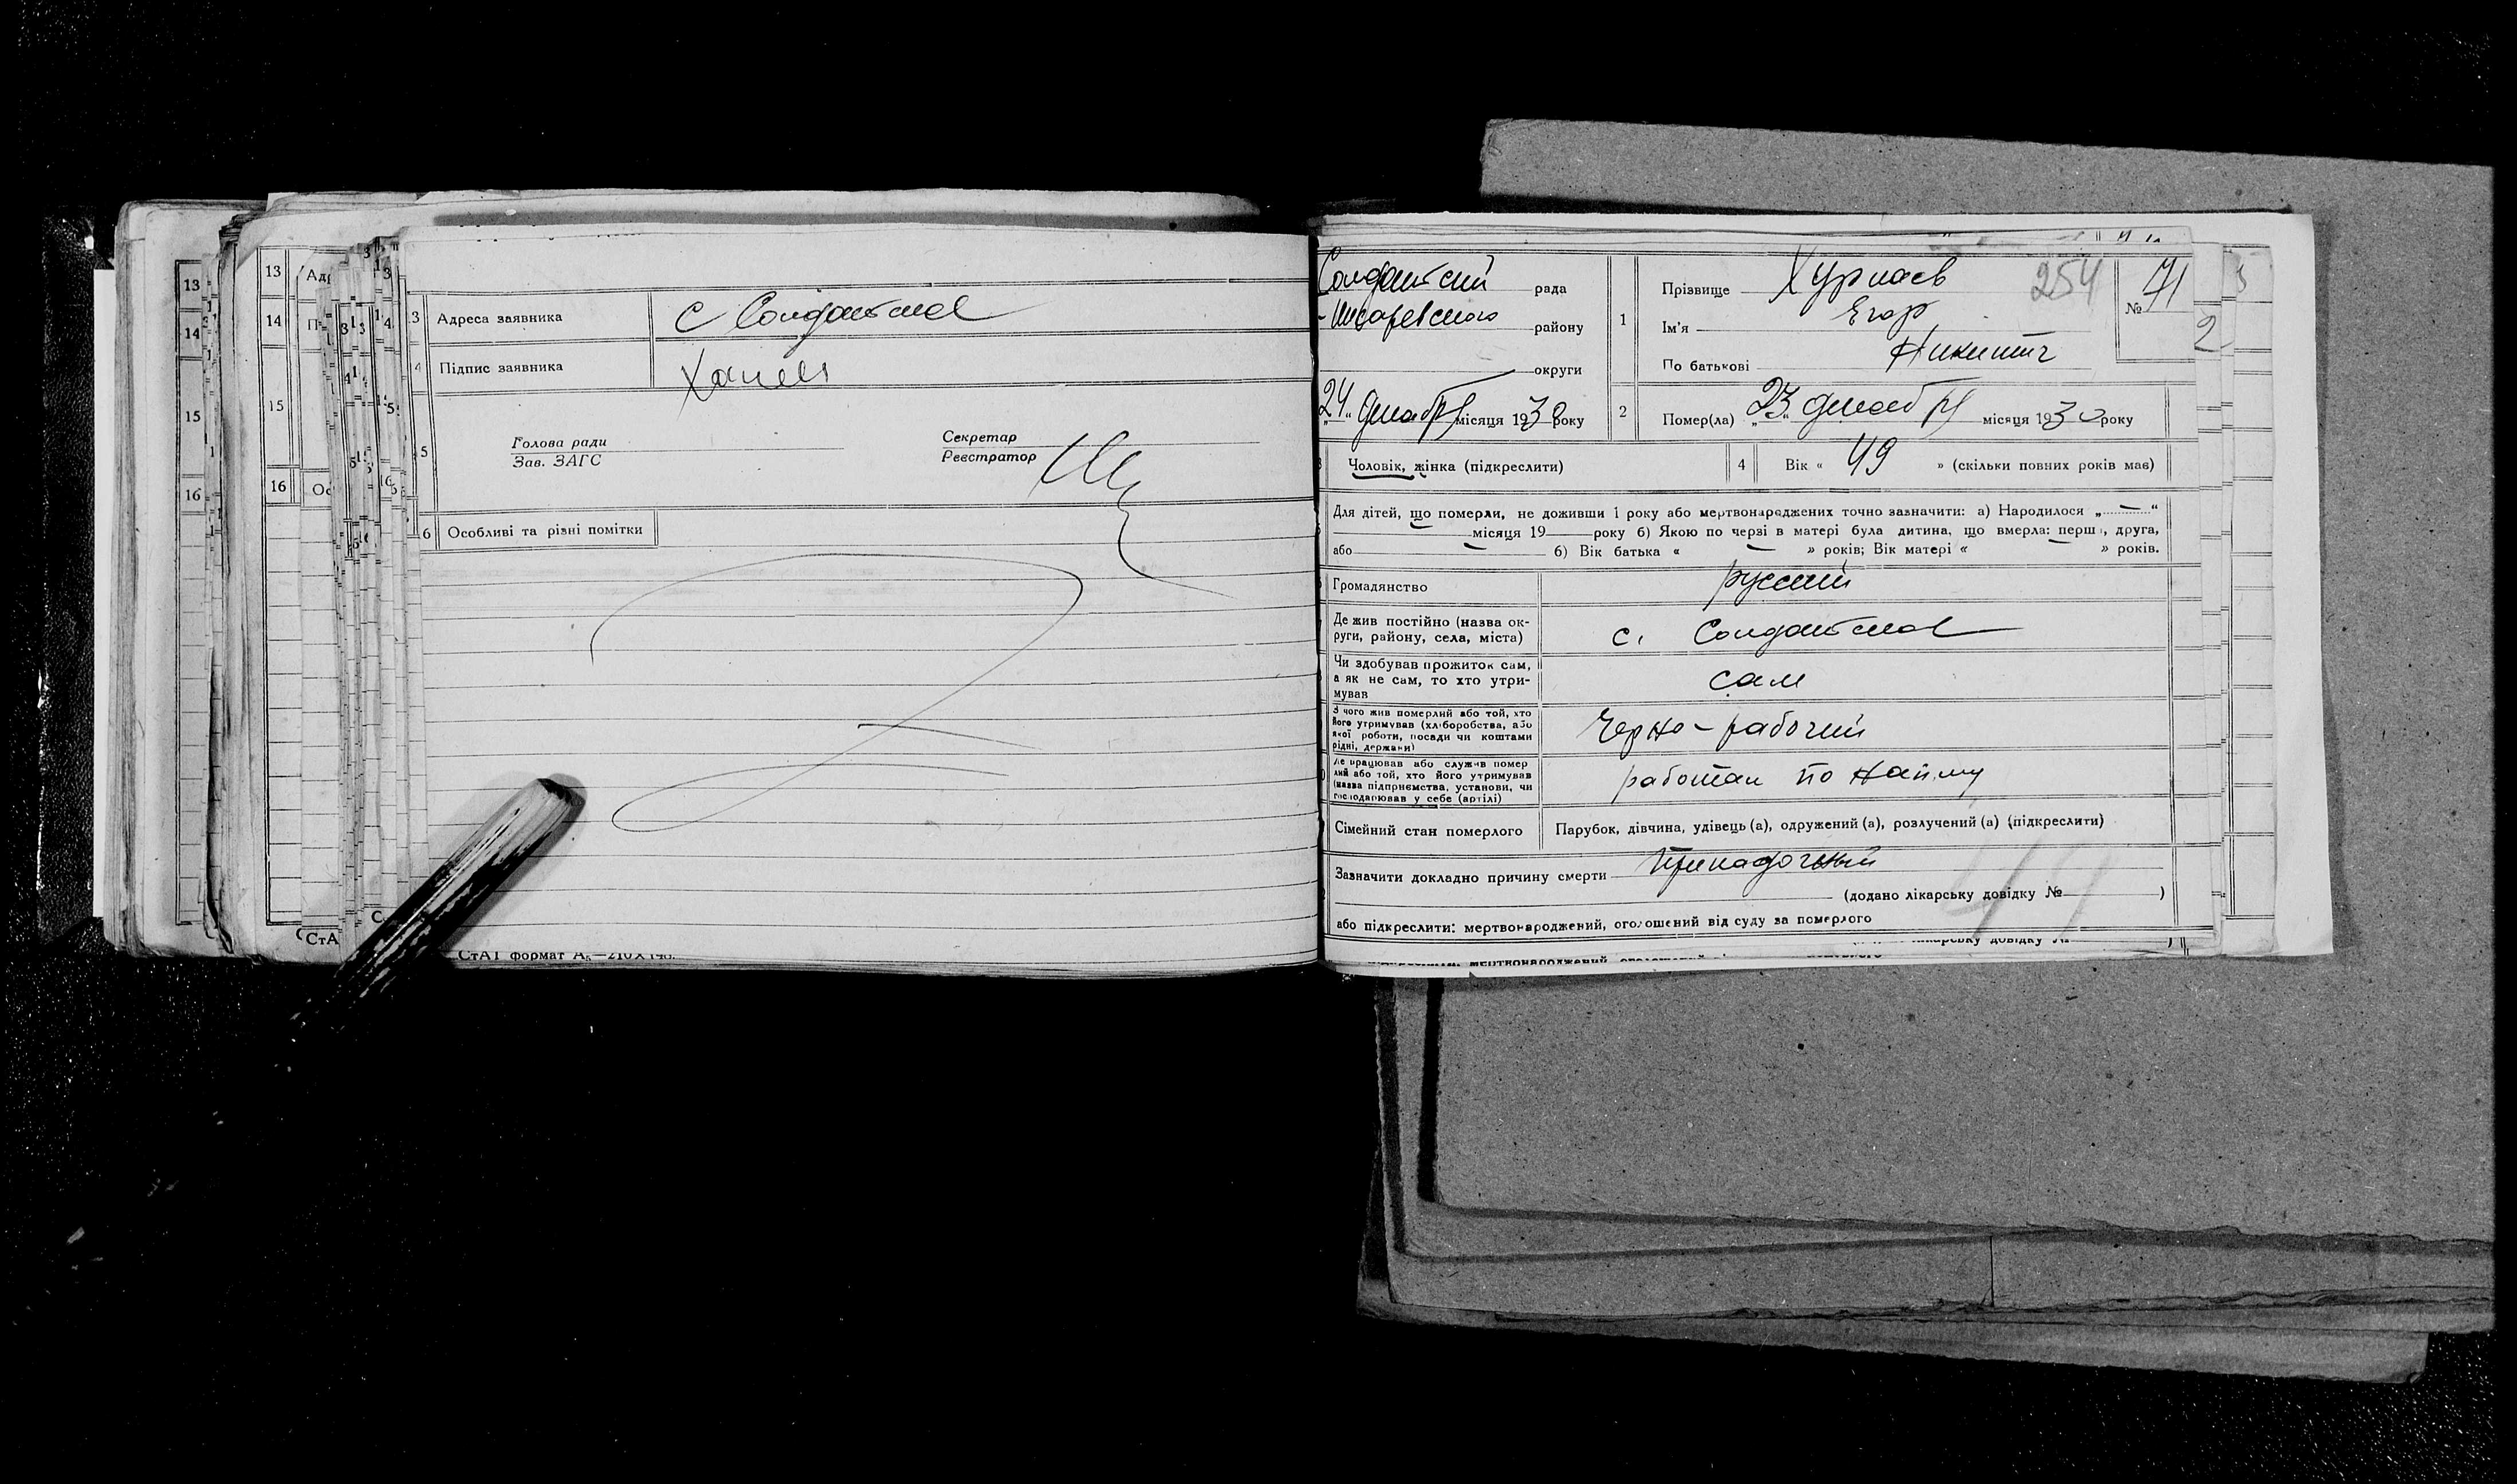 13
14
15
16
13
14
15
16
Адреса заявника с Солдатское
Підпис заявника
Голова ради
Зав. ЗАГС
Секретар
Реєстратор
6 Особливі та різні помітки
СтАТ формат А₅—210Х148.
Солдатский рада
района району
округи
24 декабря місяця 1930 року
1
Прізвище Хурпаев
254
№ 71
Ім'я Егор
По батькові Никитич
2 Помер(ла) „23“ декабря місяця 1930 року
Чоловік, жінка (підкреслити)
4 Вік « 49 » (скільки повних років має)
Для дітей, що померли, не доживши 1 року або мертвонароджених точно зазначити: а) Народилося „ — “
місяця 19 року б) Якою по черзі в матері була дитина, що вмерла: перша, друга,
або б) Вік батька « — » років; Вік матері « — » років.
Громадянство русский
Де жив постійно (назва ок-
руги, району, села, міста)
с. Солдатское
Чи здобував прожиток сам,
а як не сам, то хто утри-
мував
сам
З чого жив померлий або той, хто
його утримував (хліборобства, або
якої роботи, посади чи коштами
рідні, держави)
Черно-рабочий
Де працював або служив помер
лий або той, хто його утримував
(назва підприємства, установи, чи
господарював у себе (артілі)
работал по найму
Сімейний стан померлого Парубок, дівчина, удівець (а), одружений (а), розлучений (а) (підкреслити)
Зазначити докладно причину смерти припадочный
(додано лікарську довідку № )
або підкреслити: мертвонароджений, оголошений від суду за померлого